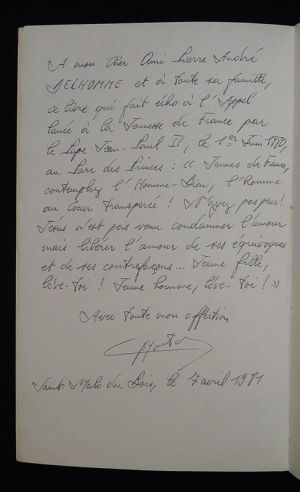 A mon cher Ami Pierre André
BELHOMME et à toute sa famille,
ce livre qui fait écho à l'Appel
lancé à la Jeunesse de France par
le Pape Jean-Paul II, le 1er Juin 1980,
au Parc des Princes : « Jeunes de France,
contemplez l'Homme-Dieu, l'homme
au cœur transpercé ! N'ayez pas peur !
Jésus n'est pas venu condamner l'amour
mais libérer l'amour de ses équivoques
et de ses contrefaçons... Jeune fille,
lève-toi ! Jeune homme, lève-toi ! »
Avec toute mon affection
Saint Malo du Bois, le 7 avril 1981